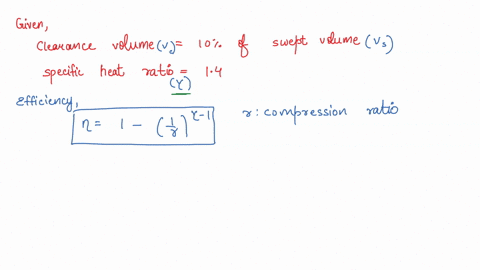 Given,
Clearance volume (Vc) = 10% of swept volume (Vs)
specific heat ratio = 1.4
(γ)
Efficiency,
η = 1 - (1/r)^(γ-1)   r : compression ratio